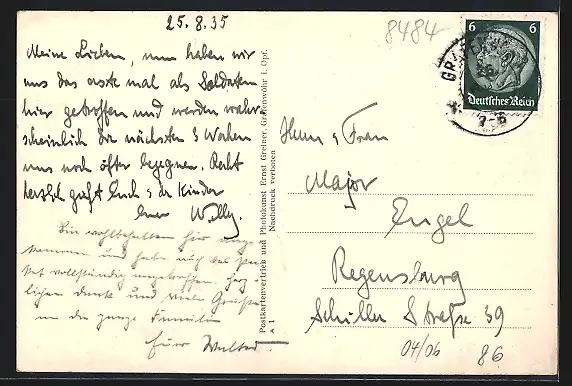 25.8.35
8484
Meine Lieben, nun haben wir
uns das erste mal als Soldaten
hier getroffen und werden wahr-
scheinlich die nächsten 3 Wochen
uns noch öfter begegnen. Recht
herzlich grüßt Euch & die Kinder
Euer Willy.
Bin wohlbehalten hier ange-
kommen und habe auch das
vollständig angetroffen. Herz-
lichen Dank und viele Grüße
an die ganze Familie
Euer Walter
Postkartenvertrieb und Photokunst Ernst Greiner, Grafenwöhr i. Opf.
Nachdruck verboten
A 1
6 6
Deutsches Reich
GRAFENWÖHR
7-8
Herrn & Frau
Major
Engel
Regensburg
Schiller Straße 39
04/06
86